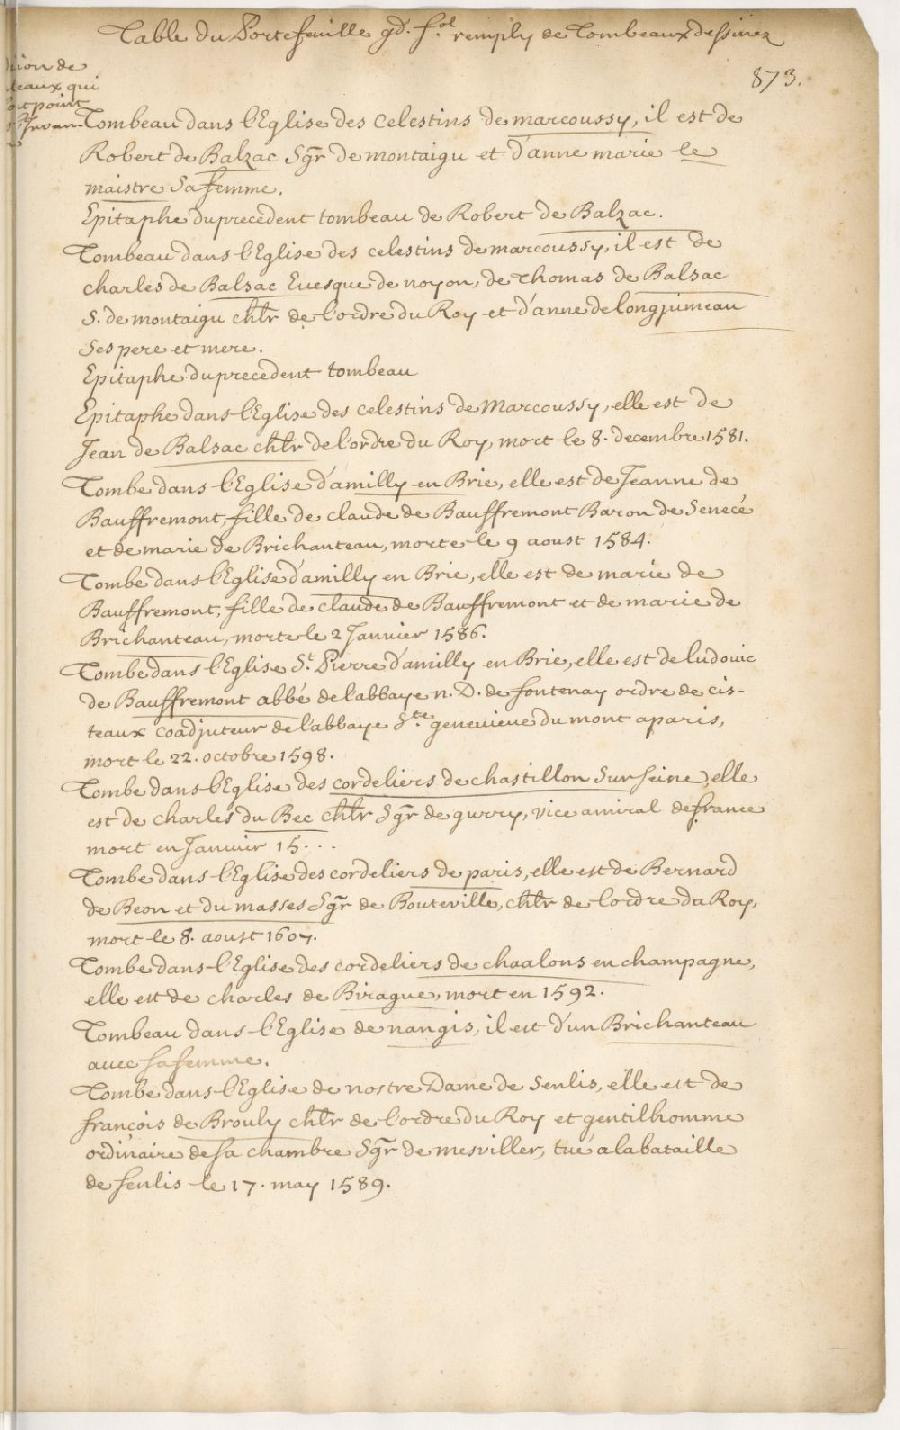 Table du Portefeuille gd. f.ol remply de Tombeaux dessinez
873.
de
eaux qui
point
Tombeau dans l'Eglise des Celestins de marcoussy, il est de
Robert de Balzac Sgr de montaigu et d'anne marie le
maistre sa femme.
Epitaphe du precedent tombeau de Robert de Balzac.
Tombeau dans l'Eglise des celestins de marcoussy, il est de
charles de Balsac Evesque de noyon, de Thomas de Balsac
S. de montaigu chlr de l'ordre du Roy et d'anne de longjumeau
ses pere et mere.
Epitaphe du precedent tombeau
Epitaphe dans l'Eglise des celestins de Marcoussy, elle est de
Jean de Balsac chlr de l'ordre du Roy, mort le 8. decembre 1581.
Tombe dans l'Eglise d'amilly en Brie, elle est de Jeanne de
Bauffremont, fille de claude de Bauffremont Baron de Senecé
et de marie de Brichanteau, morte le 9 aoust 1584.
Tombe dans l'Eglise d'amilly en Brie, elle est de marie de
Bauffremont, fille de claude de Bauffremont et de marie de
Brichanteau, morte le 2 Janvier 1586.
Tombe dans l'Eglise St. Pierre d'amilly en Brie, elle est de ludovic
de Bauffremont abbé de l'abbaye n. D. de fontenay ordre de cis-
teaux coadjuteur de l'abbaye Ste genevieve du mont a paris,
mort le 22. octobre 1598.
Tombe dans l'Eglise des cordeliers de chastillon sur seine, elle
est de charles du Bec chlr Sgr de, vice amiral de france
mort en Janvier 15...
Tombe dans l'Eglise des cordeliers de paris, elle est de Bernard
de Beon et du masses Sgr de Bouteville, chlr de l'ordre du Roy,
mort le 8. aoust 1607.
Tombe dans l'Eglise des cordeliers de chaalons en champagne,
elle est de charles de Birague, mort en 1592.
Tombeau dans l'Eglise de nangis, il est d'un Brichanteau
avec sa femme.
Tombe dans l'Eglise de nostre Dame de Senlis, elle est de
françois de Brouly chlr de l'ordre du Roy et gentilhomme
ordinaire de sa chambre Sgr de mesviller, tué a la bataille
de senlis le 17. may 1589.